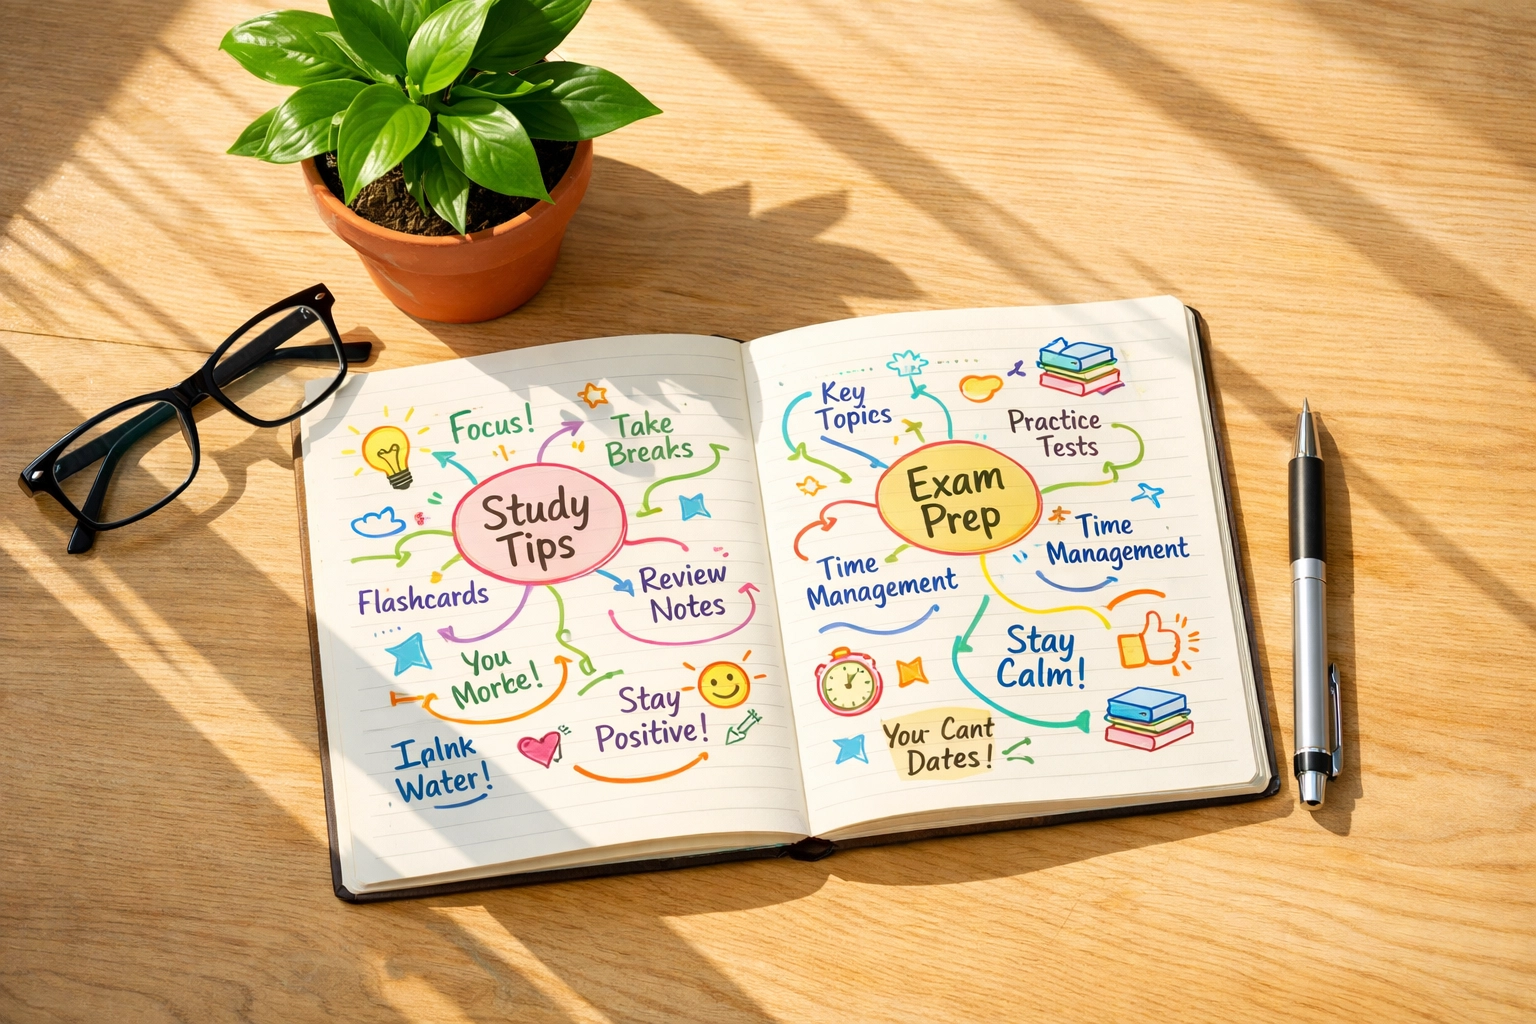 Focus!
Take
Breaks
Study
Tips
Flashcards
Review
Notes
You
Morke!
Stay
Positive!
Iplnk
Water!
Key
Topics
Practice
Tests
Exam
Prep
Time
Management
Time
Management
Stay
Calm!
You Cant
Dates!